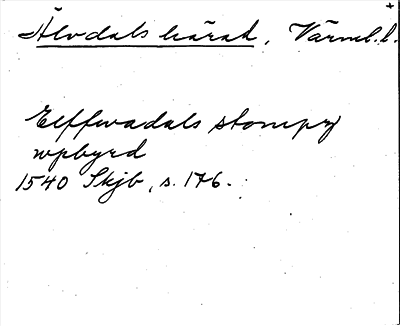 Älvdals härad, Värml. l.
Elffwadals stompy
wpbyrd
1540 Skjb, s. 176.